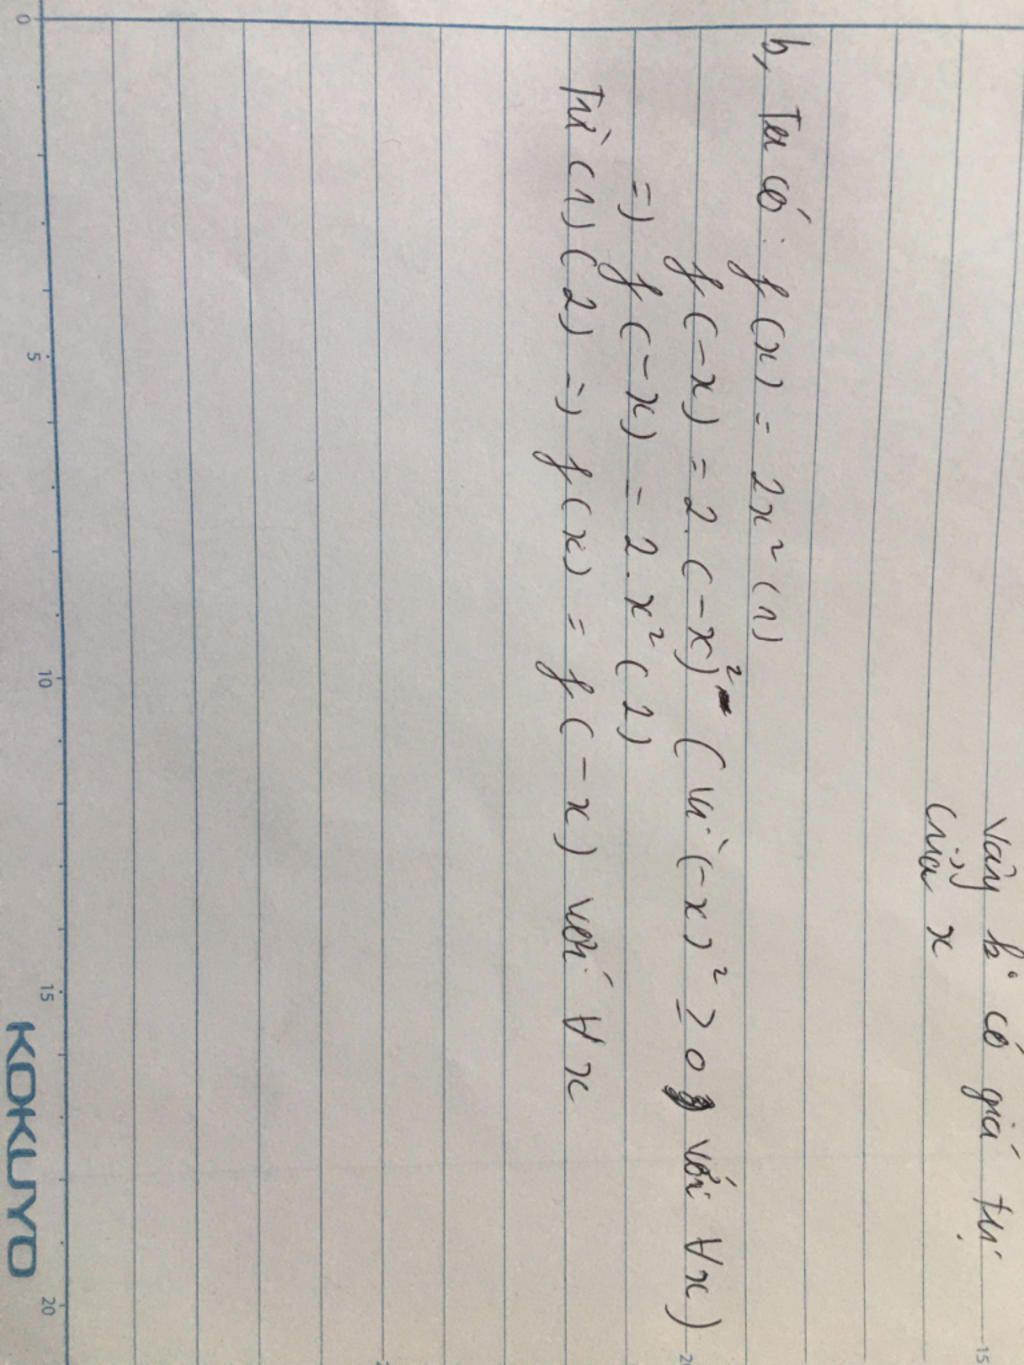 Vậy k° có giá trị
của x
b, Ta có: f(x) = 2x² (1)
f(-x) = 2.(-x)² (vì (-x)² ≥ 0 với ∀x)
=) f(-x) = 2.x² (2)
Từ (1) (2) =) f(x) = f(-x) với ∀x
KOKUYO
0 5 10 15 20
-15